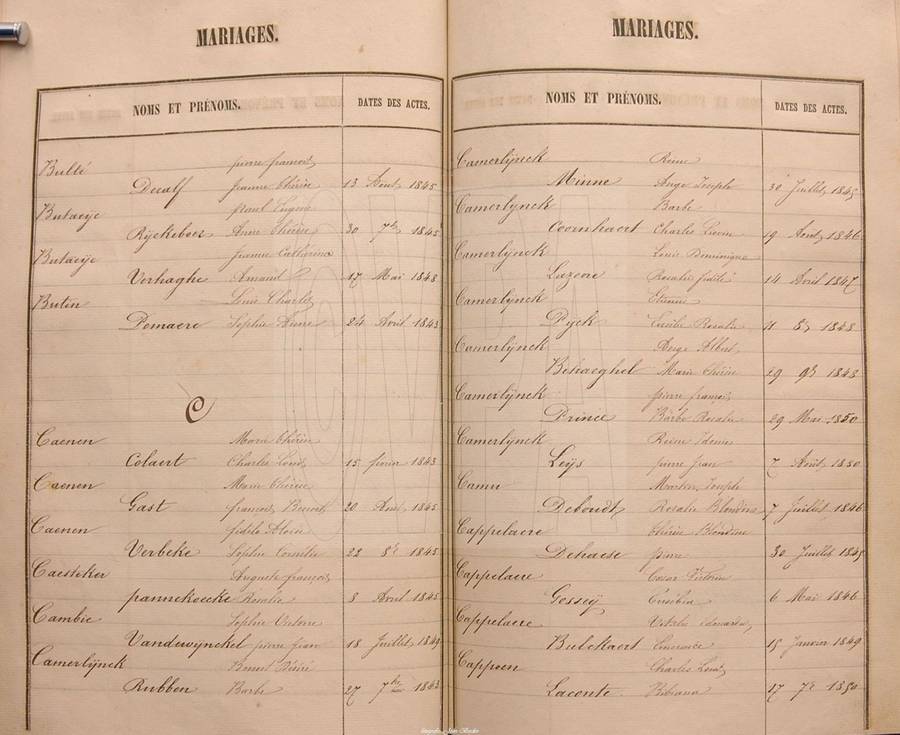 MARIAGES.
NOMS ET PRÉNOMS. DATES DES ACTES.
Bulté pierre françois
Decalf Jeanne Thérèse 13 Août 1845
Butaeije Paul Eugène
Rijckeboer Anne Thérèse 30 7bre 1845
Butaeije Jeanne Cathérine
Verhaghe Amand 17 Mai 1848
Butin Louis Charles
Demaere Sophie Anne 24 Avril 1843
C
Caenen Marie Thérèse
Colaert Charles Louis 15 1843
Caenen Marie Thérèse
Gast françois Benoit 20 1845
Caenen fidèle Aloïs
Verbeke Sophie Cornélie 28 8bre 1845
Caesteker Auguste françois
pannekoecke Rosalie 8 Avril 1845
Cambie Sophie Victoire
Vandewijnckel pierre jean 18 Juillet 1849
Camerlijnck Benoit Désiré
Rubben Barbe 27 7bre 1843
MARIAGES.
NOMS ET PRÉNOMS. DATES DES ACTES.
Camerlijnck Reine
Minne Ange Joseph 30 Juillet 1845
Camerlijnck Barbe
Coornhaert Charles 19 Août 1846
Camerlijnck Louis Dominique
Lezeire Rosalie fidèle 14 Avril 1847
Camerlijnck Etienne
Dyck Cécile Rosalie 11 8bre 1848
Camerlijnck Ange Albert
Behaeghel Marie Thérèse 19 9bre 1843
Camerlijnck pierre françois
Prince Barbe Rosalie 29 Mai 1850
Camerlijnck Reine
Leijs pierre Jean 7 Août 1850
Camu Martin Joseph
Deboudt Rosalie Blondine 7 Juillet 1846
Cappelaere Thérèse Blondine
Dehaese pierre 30 Juillet 1845
Cappelaere César
Gosseij Eusébie 6 Mai 1846
Cappelaere
Bulckaert Emerence 15 Janvier 1849
Cappoen Charles Louis
Laconte Bibiana 17 7bre 1850